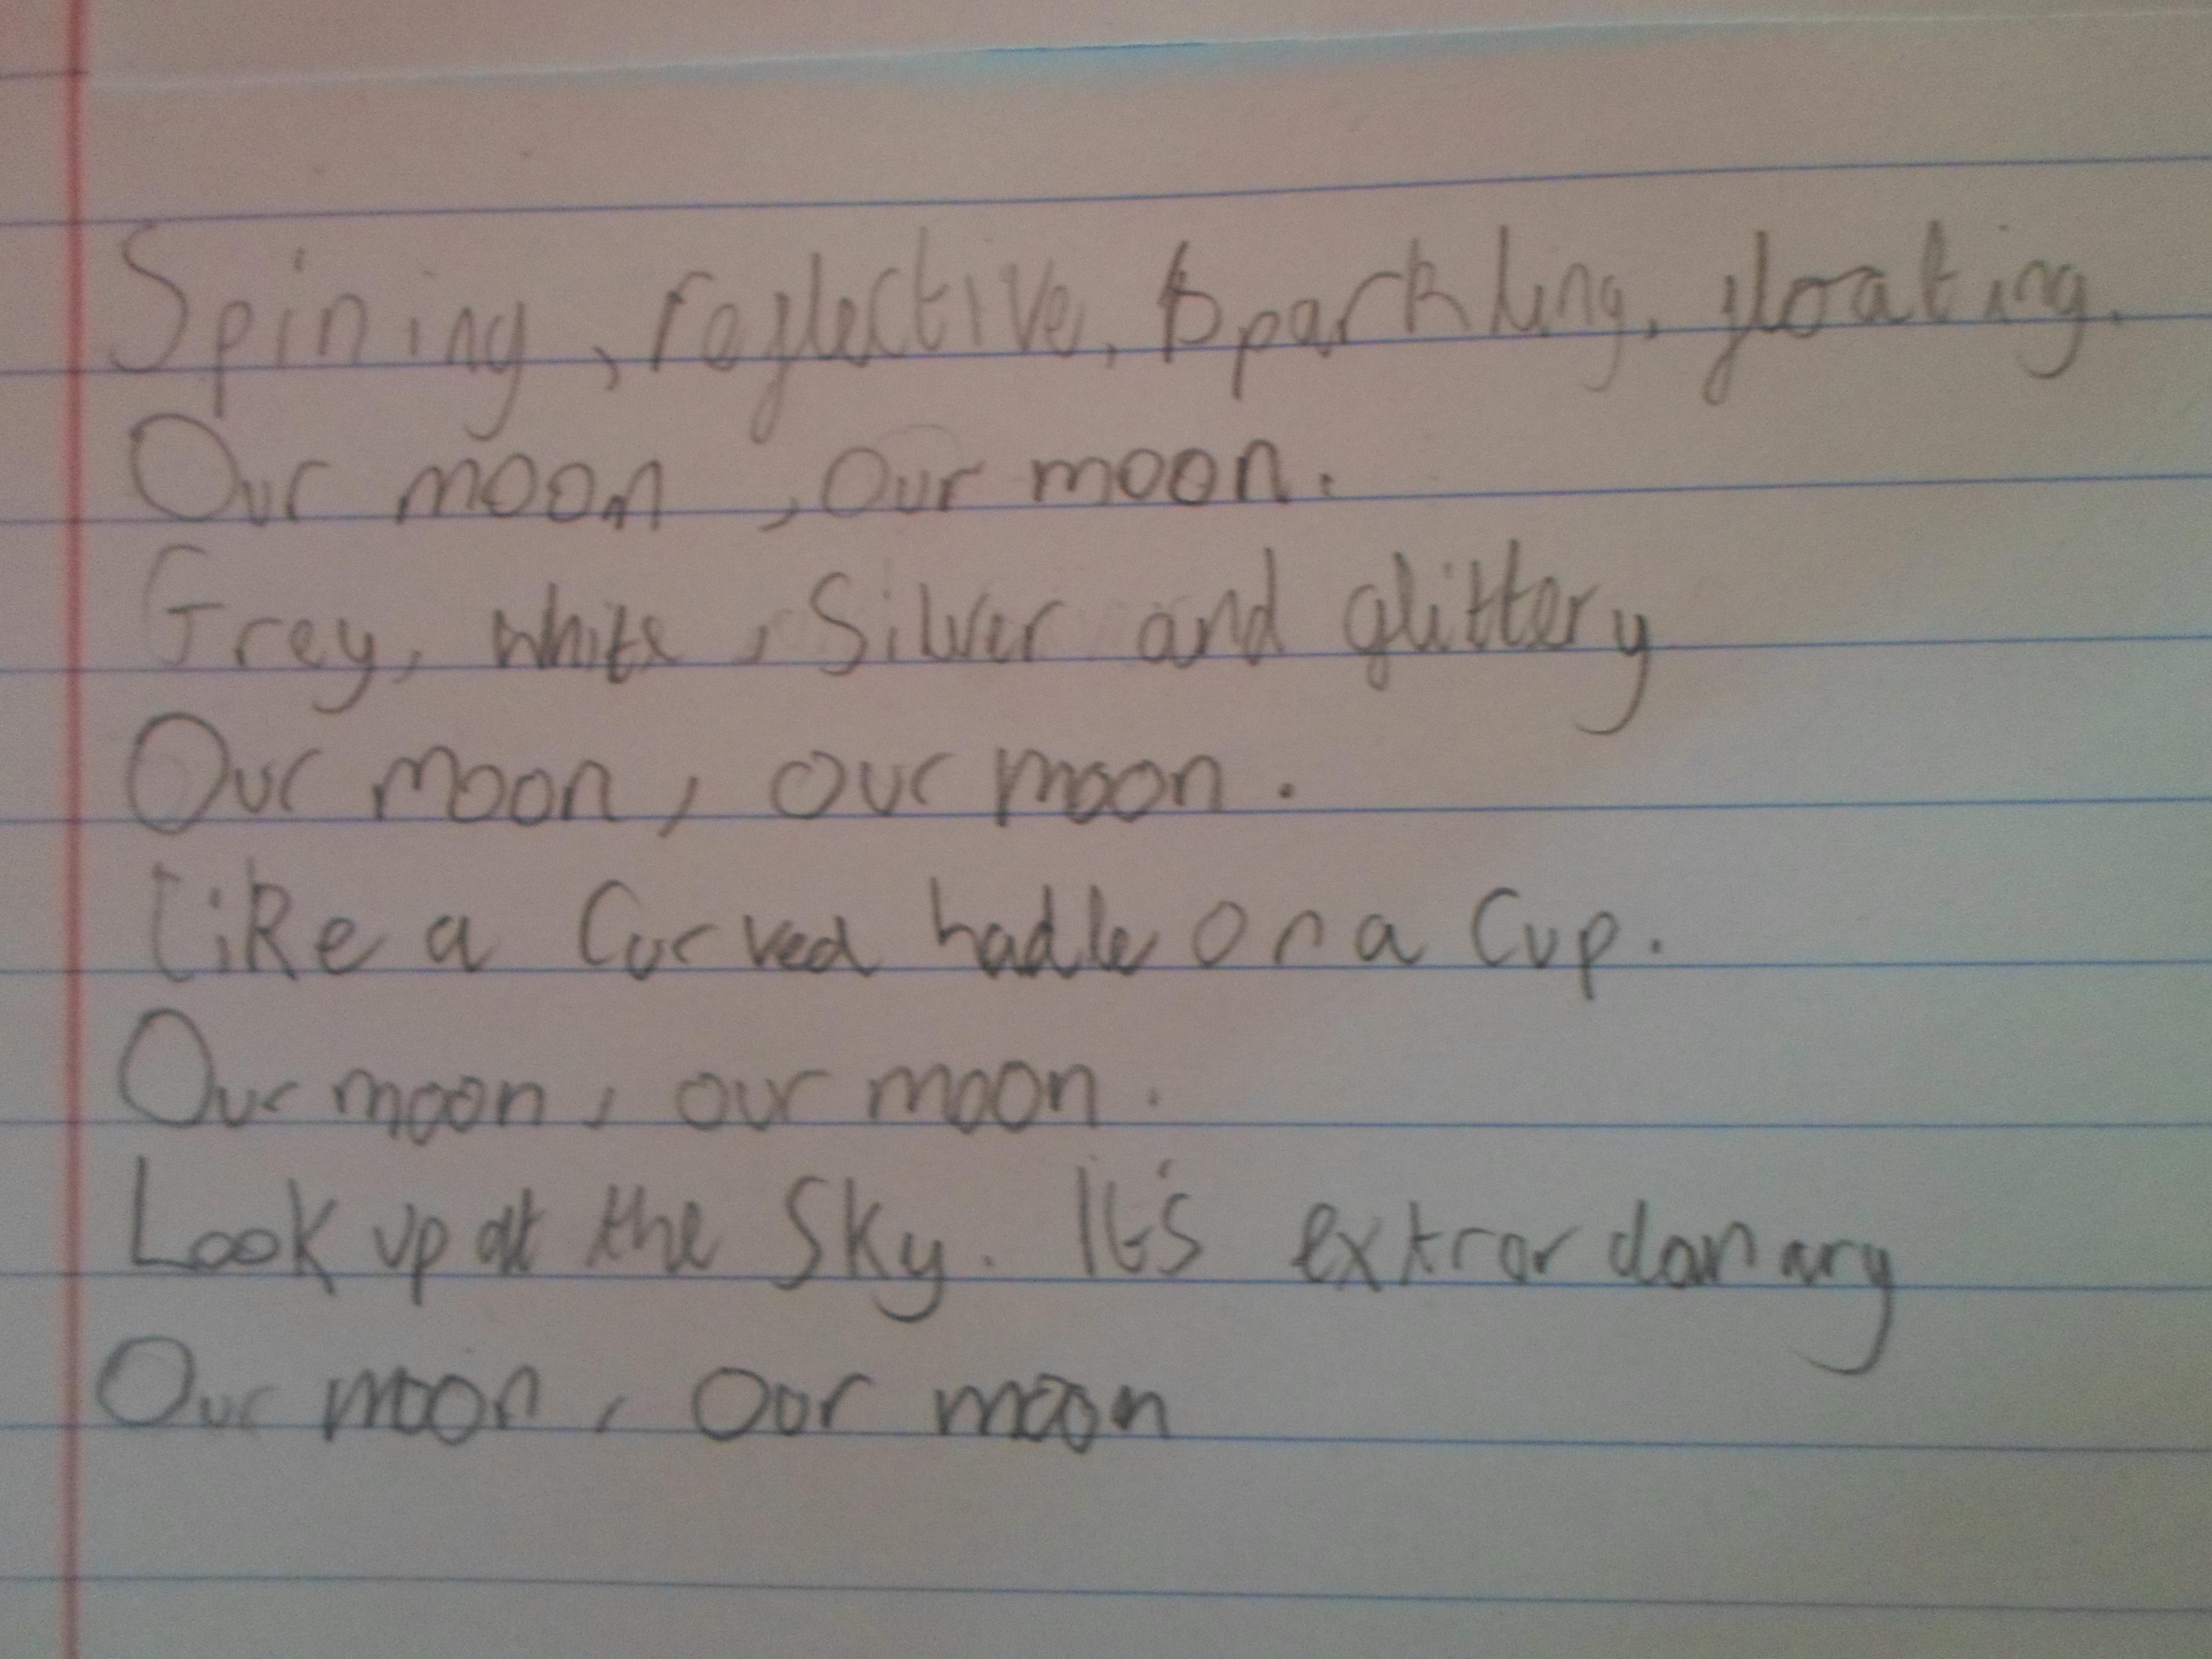 Spining, reflective, sparkling, floating.
Our moon, our moon.
Grey, white, Silver and glittery
Our moon, our moon.
Like a Curved hadle on a Cup.
Our moon, our moon.
Look up at the Sky. It's extrordanary
Our moon, oor moon